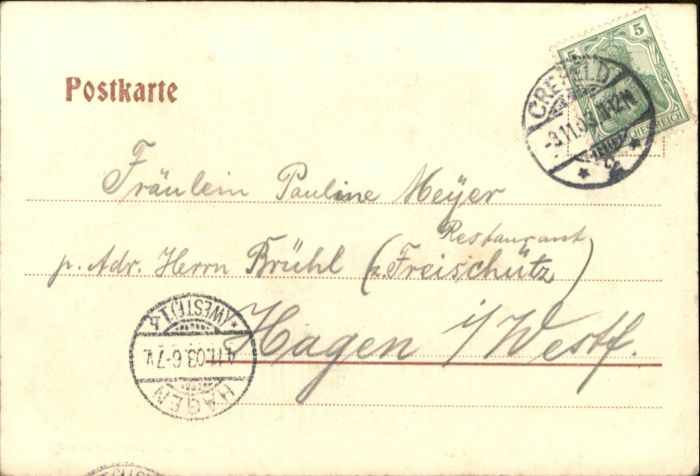 5
CREFELD
-3.11.03. 11-12N.
* 2 *
Postkarte
Fräulein Pauline Meyer
Restaurant
p. Adr. Herrn Brühl (z. Freischütz)
Hagen i/Westf.
*(WESTF.)1.c
4.11.03.6-7V.
HAGEN